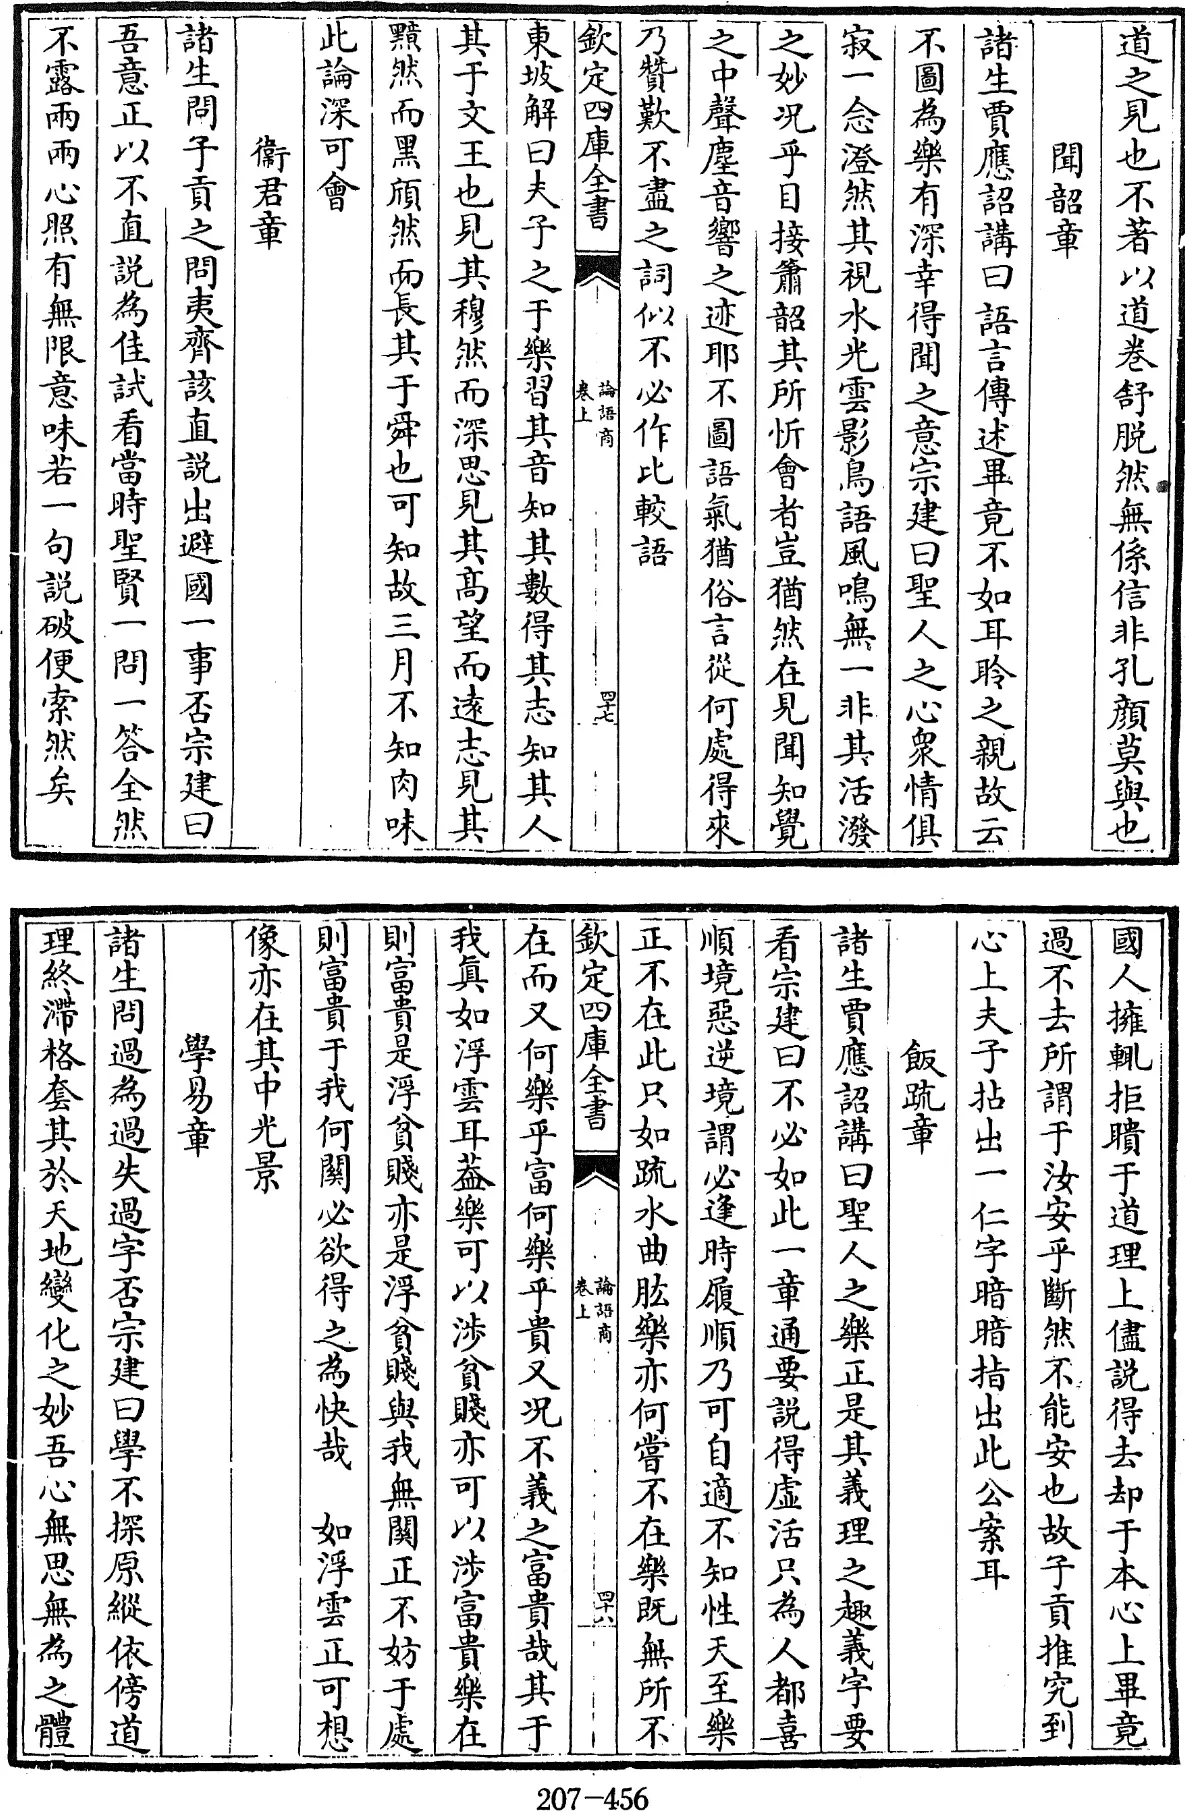 道之見也不著以道巻舒脱然無係信非孔顔莫與也
聞韶章
諸生賈應詔講曰語言傳述畢竟不如耳聆之親故云
不圖為樂有深幸得聞之意宗建曰聖人之心衆情俱
寂一念澄然其視水光雲影鳥語風鳴無一非其活潑
之妙况乎目接簫韶其所忻會者豈猶然在見聞知覺
之中聲塵音響之迹耶不圖語氣猶俗言從何處得來
乃贊歎不盡之詞似不必作比較語
欽定四庫全書
論語商
卷上
四十七
東坡解曰夫子之于樂習其音知其數得其志知其人
其于文王也見其穆然而深思見其高望而遠志見其
黮然而黑頎然而長其于舜也可知故三月不知肉味
此論深可會
衞君章
諸生問子貢之問夷齊該直説出避國一事否宗建曰
吾意正以不直説為佳試看當時聖賢一問一答全然
不露兩兩心照有無限意味若一句説破便索然矣
國人擁輒拒聵于道理上儘説得去却于本心上畢竟
過不去所謂于汝安乎斷然不能安也故子貢推究到
心上夫子拈出一仁字暗暗指出此公案耳
飯疏章
諸生賈應詔講曰聖人之樂正是其義理之趣義字要
看宗建曰不必如此一章通要説得虛活只為人都喜
順境惡逆境謂必逢時履順乃可自適不知性天至樂
正不在此只如疏水曲肱樂亦何嘗不在樂既無所不
欽定四庫全書
論語商
卷上
四十八
在而又何樂乎富何樂乎貴又况不義之富貴哉其于
我真如浮雲耳葢樂可以涉貧賤亦可以涉富貴樂在
則富貴是浮貧賤亦是浮貧賤與我無關正不妨于處
則富貴于我何關必欲得之為快哉 如浮雲正可想
像亦在其中光景
學易章
諸生問過為過失過字否宗建曰學不探原縱依傍道
理終滯格套其於天地變化之妙吾心無思無為之體
207-456